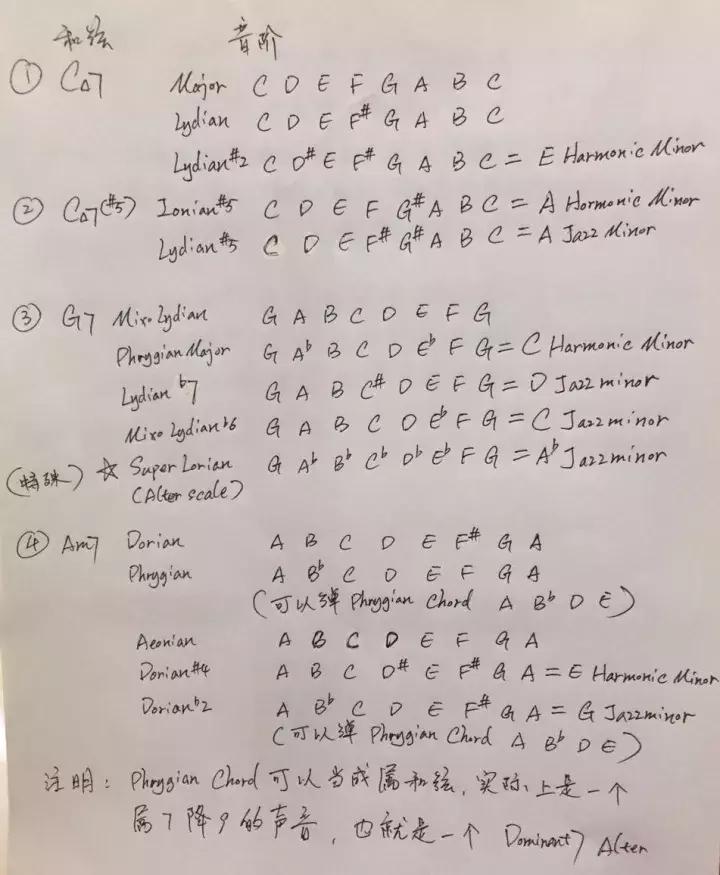 和弦 音阶
① C△7 Major C D E F G A B C
Lydian C D E F# G A B C
Lydian#2 C D# E F# G A B C = E Harmonic Minor
② C△7(#5) Ionian#5 C D E F G# A B C = A Hormonic Minor
Lydian#5 C D E F# G# A B C = A Jazz Minor
③ G7 Mixo Lydian G A B C D E F G
Phrygian Major G Ab B C D Eb F G = C Harmonic Minor
Lydian b7 G A B C# D E F G = D Jazz minor
Mixo Lydian b6 G A B C D Eb F G = C Jazz minor
(特殊) ☆ Super Lorian G Ab Bb Cb Db Eb F G = Ab Jazz minor
(Alter scale)
④ Am7 Dorian A B C D E F# G A
Phrygian A Bb C D E F G A
(可以弹 Phrygian Chord A Bb D E)
Aeonian A B C D E F G A
Dorian#4 A B C D# E F# G A = E Harmonic Minor
Dorian b2 A Bb C D E F# G A = G Jazz minor
(可以弹 Phrygian Chord A Bb D E)
注明: Phrygian Chord 可以当成属和弦, 实际上是一个
属7降9的声音, 也就是一个 Dominant7 Alter